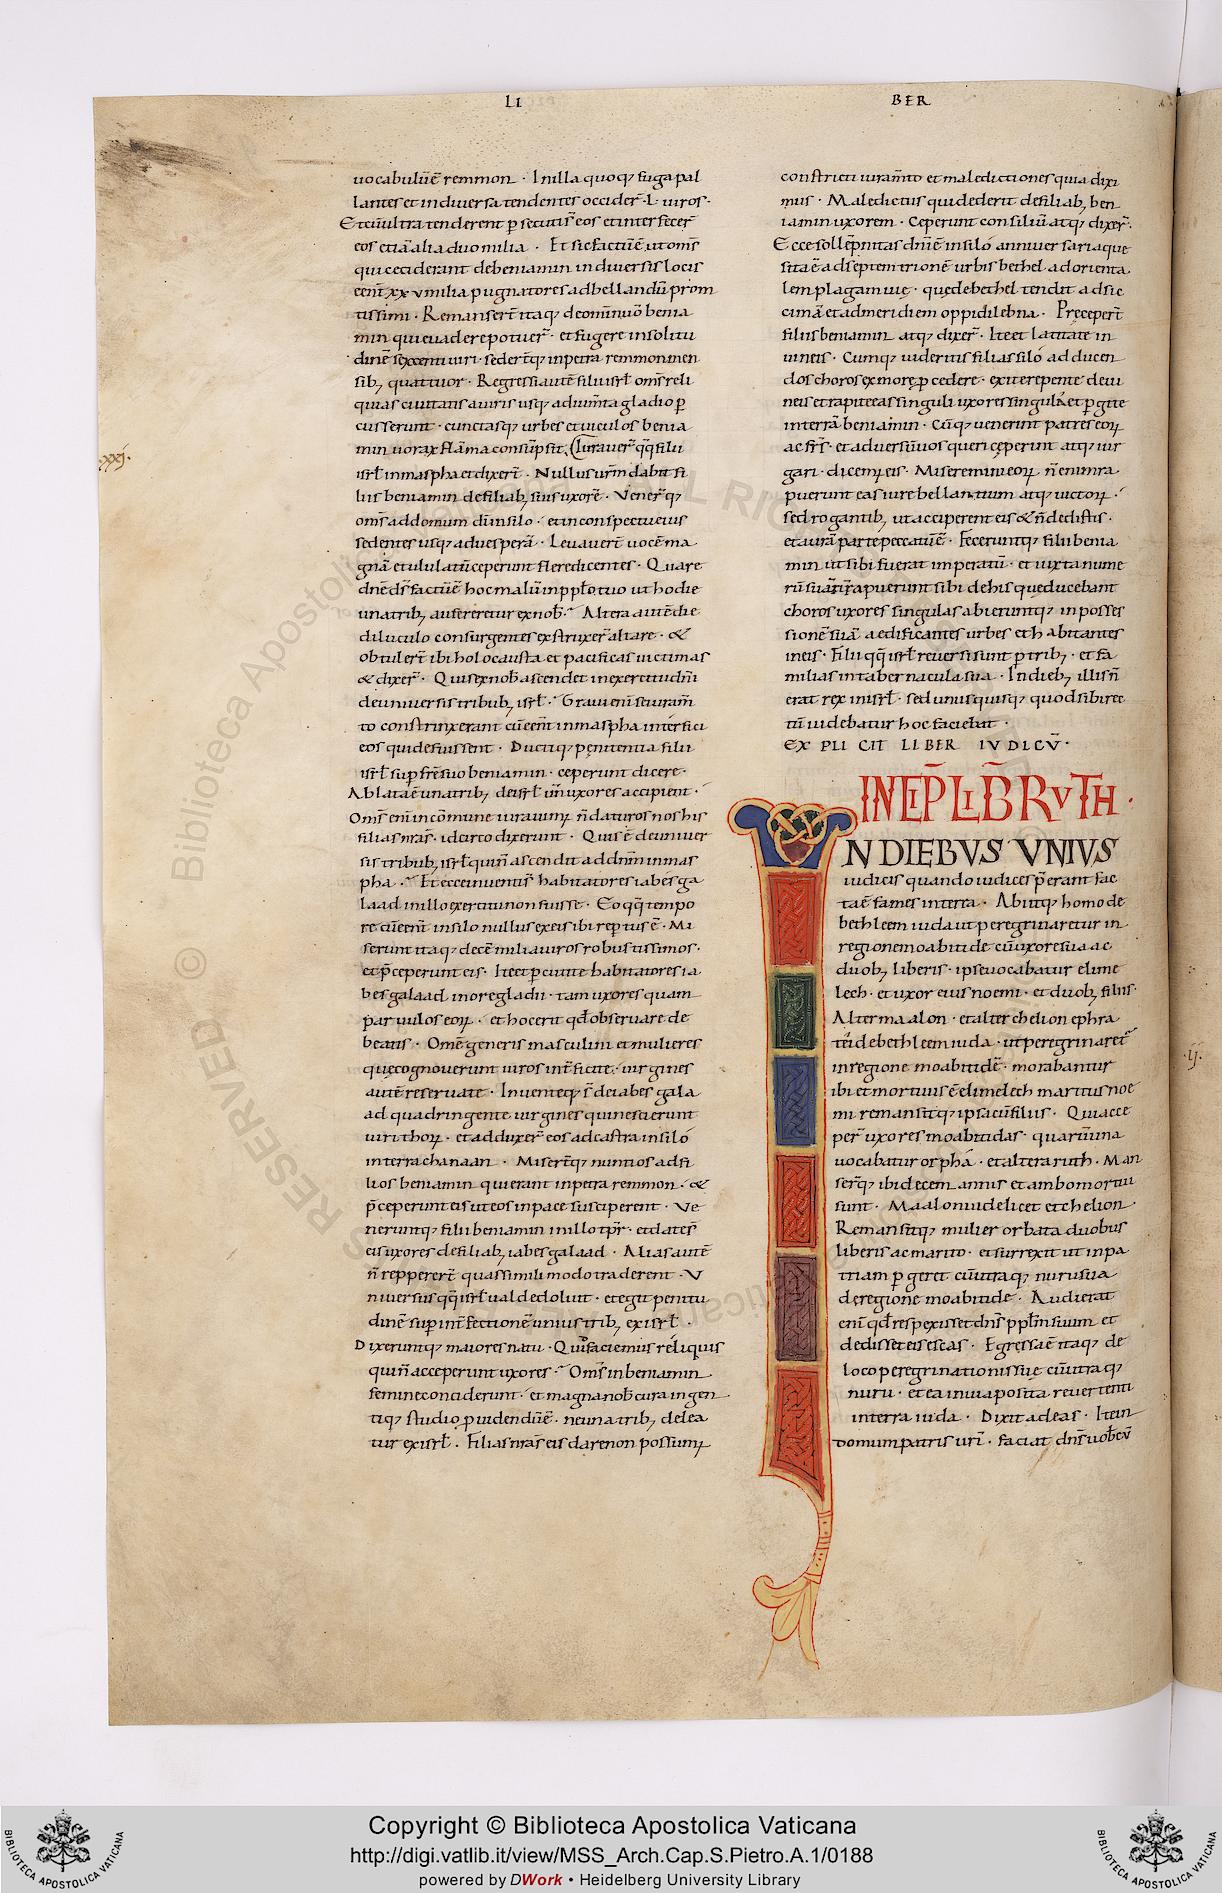 LI BER
uocabulũ ẽ remmon · In illa quoq; fuga pal
lantes et in diuersa tendentes occider̃ · L · uiros ·
Et cũ ultra tenderent p̱secuti s̃ eos et interfecer̃
eos etiã alia duo milia · Et sic factũ ẽ ut oms̃
qui ceciderant de beniamin in diuersis locis
eent̃ xx v milia pugnatores ad bellandũ prom
tissimi · Remanser̃t itaq; de om̃i numero benia
min qui euadere potuer̃ · et fugere in solitu
dinẽ sexcenti uiri · seder̃tq; in petra remmon men
sib; quattuor · Regressi autẽ filii isrł oms̃ reli
quias ciuitatis a uiris usq; ad iumẽta gladio p̱
cusserunt · cunctasq; urbes et uiculos benia
min uorax flãma consũpsit; Iurauer̃ q̃q; filii
xxj.
isrł in maspha et dixer̃t · Nullus nr̃m dabit fi
liis beniamin de filiab; suis uxorẽ · Vener̃q;
oms̃ ad domum dĩ in silo · et in conspectu eius
sedentes usq; ad uesperã · Leuauer̃t uocẽ ma
gnã et ululatũ ceperunt flere dicentes · Quare
dnẽ ds̃ factũ ẽ hoc malũ in ppło tuo ut hodie
una trib; auferretur ex nob̃ · Altera autẽ die
diluculo consurgentes exstruxer̃ altare · &
obtuler̃t ibi holocausta et pacificas uictimas
& dixer̃ · Quis ex nob̃ ascendet in exercitu dñi
de uniuersis tribub; isrł · Graui enĩ se iuram̃
to constrinxerant cũ eent̃ in maspha interfici
eos qui defuissent · Ductiq; pęnitentia filii
isrł sup̱ fr̃e suo beniamin · ceperunt dicere ·
Ablata ẽ una trib; de isrł uñ uxores accipient ·
Oms̃ enĩ in cõmune iurauim; ñ daturos nos his
filias nr̃as · idcirco dixerunt · Quis ẽ de uniuer
sis tribub; isrł qui ñ ascendit ad dnm̃ in mas
pha · Et ecce inuenti s̃ habitatores iabes ga
laad in illo exercitu non fuisse · Eo q̃q; tempo
re cũ eent̃ in silo nullus ex eis ibi rep̱tus ẽ · Mi
serunt itaq; decẽ milia uiros robustissimos ·
et p̃ceperunt eis · Ite et p̱cutite habitatores ia
bes galaad in ore gladii · tam uxores quam
paruulos eor̃ · et hoc erit qđ obseruare de
beatis · Omẽ generis masculini et mulieres
quę cognouerunt uiros int̃ficite · uirgines
autẽ reseruate · Inuenteq; s̃ de iabes gala
ad quadringente uirgines que nescierunt
uiri thor̃ · et adduxer̃ eos ad castra in silo
in terra chanaan · Miser̃tq; nuntios ad fi
lios beniamin qui erant in petra remmon · &
p̃ceperunt eis ut eos in pace susciperent · Ve
neruntq; filii beniamin in illo tp̃r · et date s̃
eis uxores de filiab; iabes galaad · Alias autẽ
ñ repperert̃ quas simili modo traderent · V
niuersusq; isrł ualde doluit · et egit penitu
dinẽ sup̱ int̃fectionẽ unius trib; ex isrł ·
Dixeruntq; maiores natu · Quid faciemus reliquis
qui ñ acceperunt uxores · Oms̃ in beniamin
femine conciderunt · et magna nob̃ cura ingen
tiq; studio p̱uidendũ ẽ · ne una trib; delea
tur ex isrł · Filias nr̃as eis dare non possum;
constricti iuram̃to et maledictiones quia dixi
mus · Maledictus qui dederit de filiab; ben
iamin uxorem · Ceperunt consiliũ atq; dixer̃ ·
Ecce sollẽpnitas dnĩ ẽ in silo anniuersaria que
sita ẽ ad septemtrionẽ urbis bethel · ad orienta
lem plagam uię · quę de bethel tendit ad sic
cimã et ad meridiem oppidi lebna · Preceper̃t
filiis beniamin atq; dixer̃ · Ite et latitate in
uineis · Cumq; uideritis filias silo ad ducen
dos choros ex more p̱cedere · exite repente de ui
neis et rapite eas singuli uxores singulas et p̱gite
in terrã beniamin · Cũq; uenerint patres eor̃
ac fr̃s · et aduersũ uos queri ceperint atq; iur
gari · dicem; eis · Miseremini eor̃ ñ enim ra
puerunt eas iure bellantium atq; uictor̃ ·
sed rogantib; ut acciperent eis & ñ dedistis ·
et a urã parte peccatũ ẽ · Feceruntq; filii benia
min ut sibi fuerat imperatũ · et iuxta nume
rũ suũ rapuerunt sibi de his que ducebant
choros uxores singulas abieruntq; in posses
sionẽ suã aedificantes urbes et habitantes
in eis · Filii q̃q; isrł reuersi sunt p̱ trib; et fa
milias in tabernacula sua · In dieb; illis ñ
erat rex in isrł · sed unusquisq; quod sibi rec
tũ uidebatur hoc faciebat ·
EXPLICIT LIBER IVDICṼ ·
INCIP̃ LIB̃ RVTH ·
IN DIEBVS VNIVS
iudicis quando iudices p̃erant fac
ta ẽ fames in terra · Abiitq; homo de
bethleem iuda ut peregrinaretur in
regione moabitide cũ uxore sua ac
duob; liberis · ipse uocabatur elime
lech · et uxor eius noemi · et duob; filiis ·
Alter maalon · et alter chelion ephra
tei de bethleem iuda · ut peregrinaret̃
.ij.
in regione moabitide · morabantur
ibi et mortuus ẽ elimelech maritus noe
mi remansitq; ipsa cũ filiis · Qui acce
per̃ uxores moabitidas · quarũ una
uocabatur orpha · et altera ruth · Man
ser̃q; ibi decem annis et ambo mortui
sunt · Maalon uidelicet et chelion ·
Remansitq; mulier orbata duobus
liberis ac marito · et surrexit ut in pa
triam p̱geret cũ utraq; nuru sua
de regione moabitide · Audierat
enĩ qđ respexisset dns̃ ppłm suum et
dedisset eis escas · Egressa ẽ itaq; de
loco peregrinationis suę cũ utraq;
nuru · et ea in uia posita reuertenti
in terra iuda · Dixit ad eas · Ite in
domum patris uri · faciat dns̃ uob̃cũ
Copyright © Biblioteca Apostolica Vaticana
http://digi.vatlib.it/view/MSS_Arch.Cap.S.Pietro.A.1/0188
powered by DWork • Heidelberg University Library